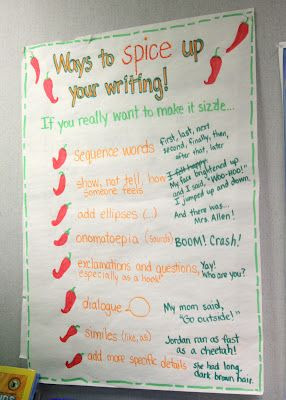 Ways to spice up
your writing!
If you really want to make it sizzle...
sequence words
first, last, next
second, finally, then,
after that, later
show, not tell, how
someone feels
I felt happy
My face brightened up
and I said, "WOO-HOO!"
I jumped up and down.
add ellipses (...)
And there was...
Mrs. Allen!
onomatopeia (sounds)
BOOM! Crash!
exclamations and questions,
especially as a hook!
Yay!
Who are you?
dialogue
My mom said,
"Go outside!"
similes (like, as)
Jordan ran as fast
as a cheetah!
add more specific details
she had long,
dark brown hair.